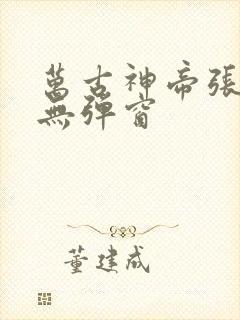 萬古神帝張
無彈窗
董建成